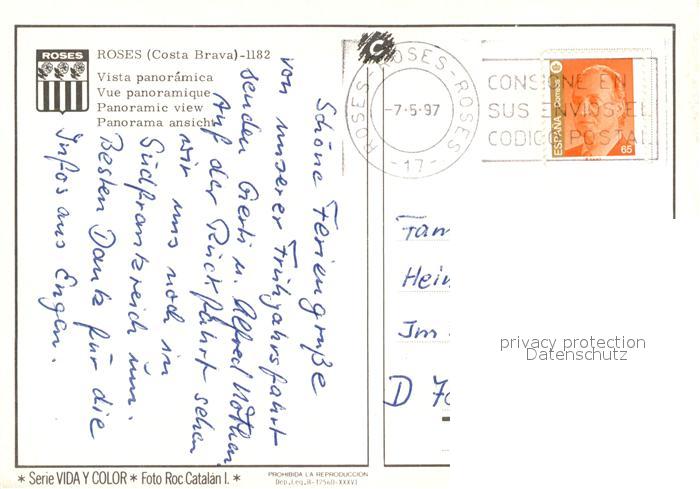 ROSES
ROSES (Costa Brava)-1182
Vista panorámica
Vue panoramique
Panoramic view
Panorama ansicht
Schöne Feriengrüße
von unserer Frühjahrsfahrt
senden Gerti u. Alfred
Auf der Rückfahrt sehen
wir uns noch in
Südfrankreich um.
Besten Dank für die
Infos aus Engen.
C
ROSES-ROSES-ROSES
-7-5-97
-17-
CONSIGNE EN
SUS ENVIOS EL
CODIGO POSTAL
ESPAÑA Correos
65
Fam
Hein
Im
D 70
privacy protection
Datenschutz
* Serie VIDA Y COLOR * Foto Roc Catalán I. *
PROHIBIDA LA REPRODUCCION
Dep.Leg.B-17560-XXXVI